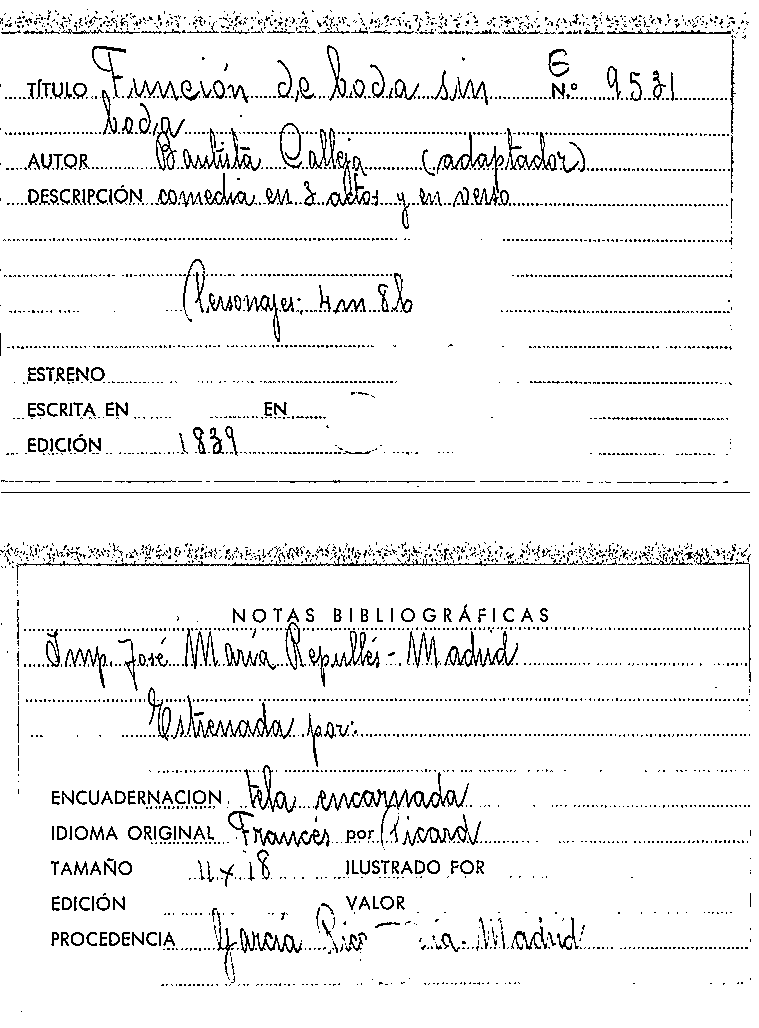 TÍTULO Función de boda sin G N.º 9531
boda
AUTOR Bautista Calleja (adaptador)
DESCRIPCIÓN comedia en 3 actos y en verso
Personajes: 4m 8h
ESTRENO
ESCRITA EN EN
EDICIÓN 1839
NOTAS BIBLIOGRÁFICAS
Imp. José María Repullés - Madrid
Estrenada por:
ENCUADERNACION tela encarnada
IDIOMA ORIGINAL Francés por Picard
TAMAÑO 11 x 18 ILUSTRADO FOR
EDICIÓN VALOR
PROCEDENCIA García Rico Madrid